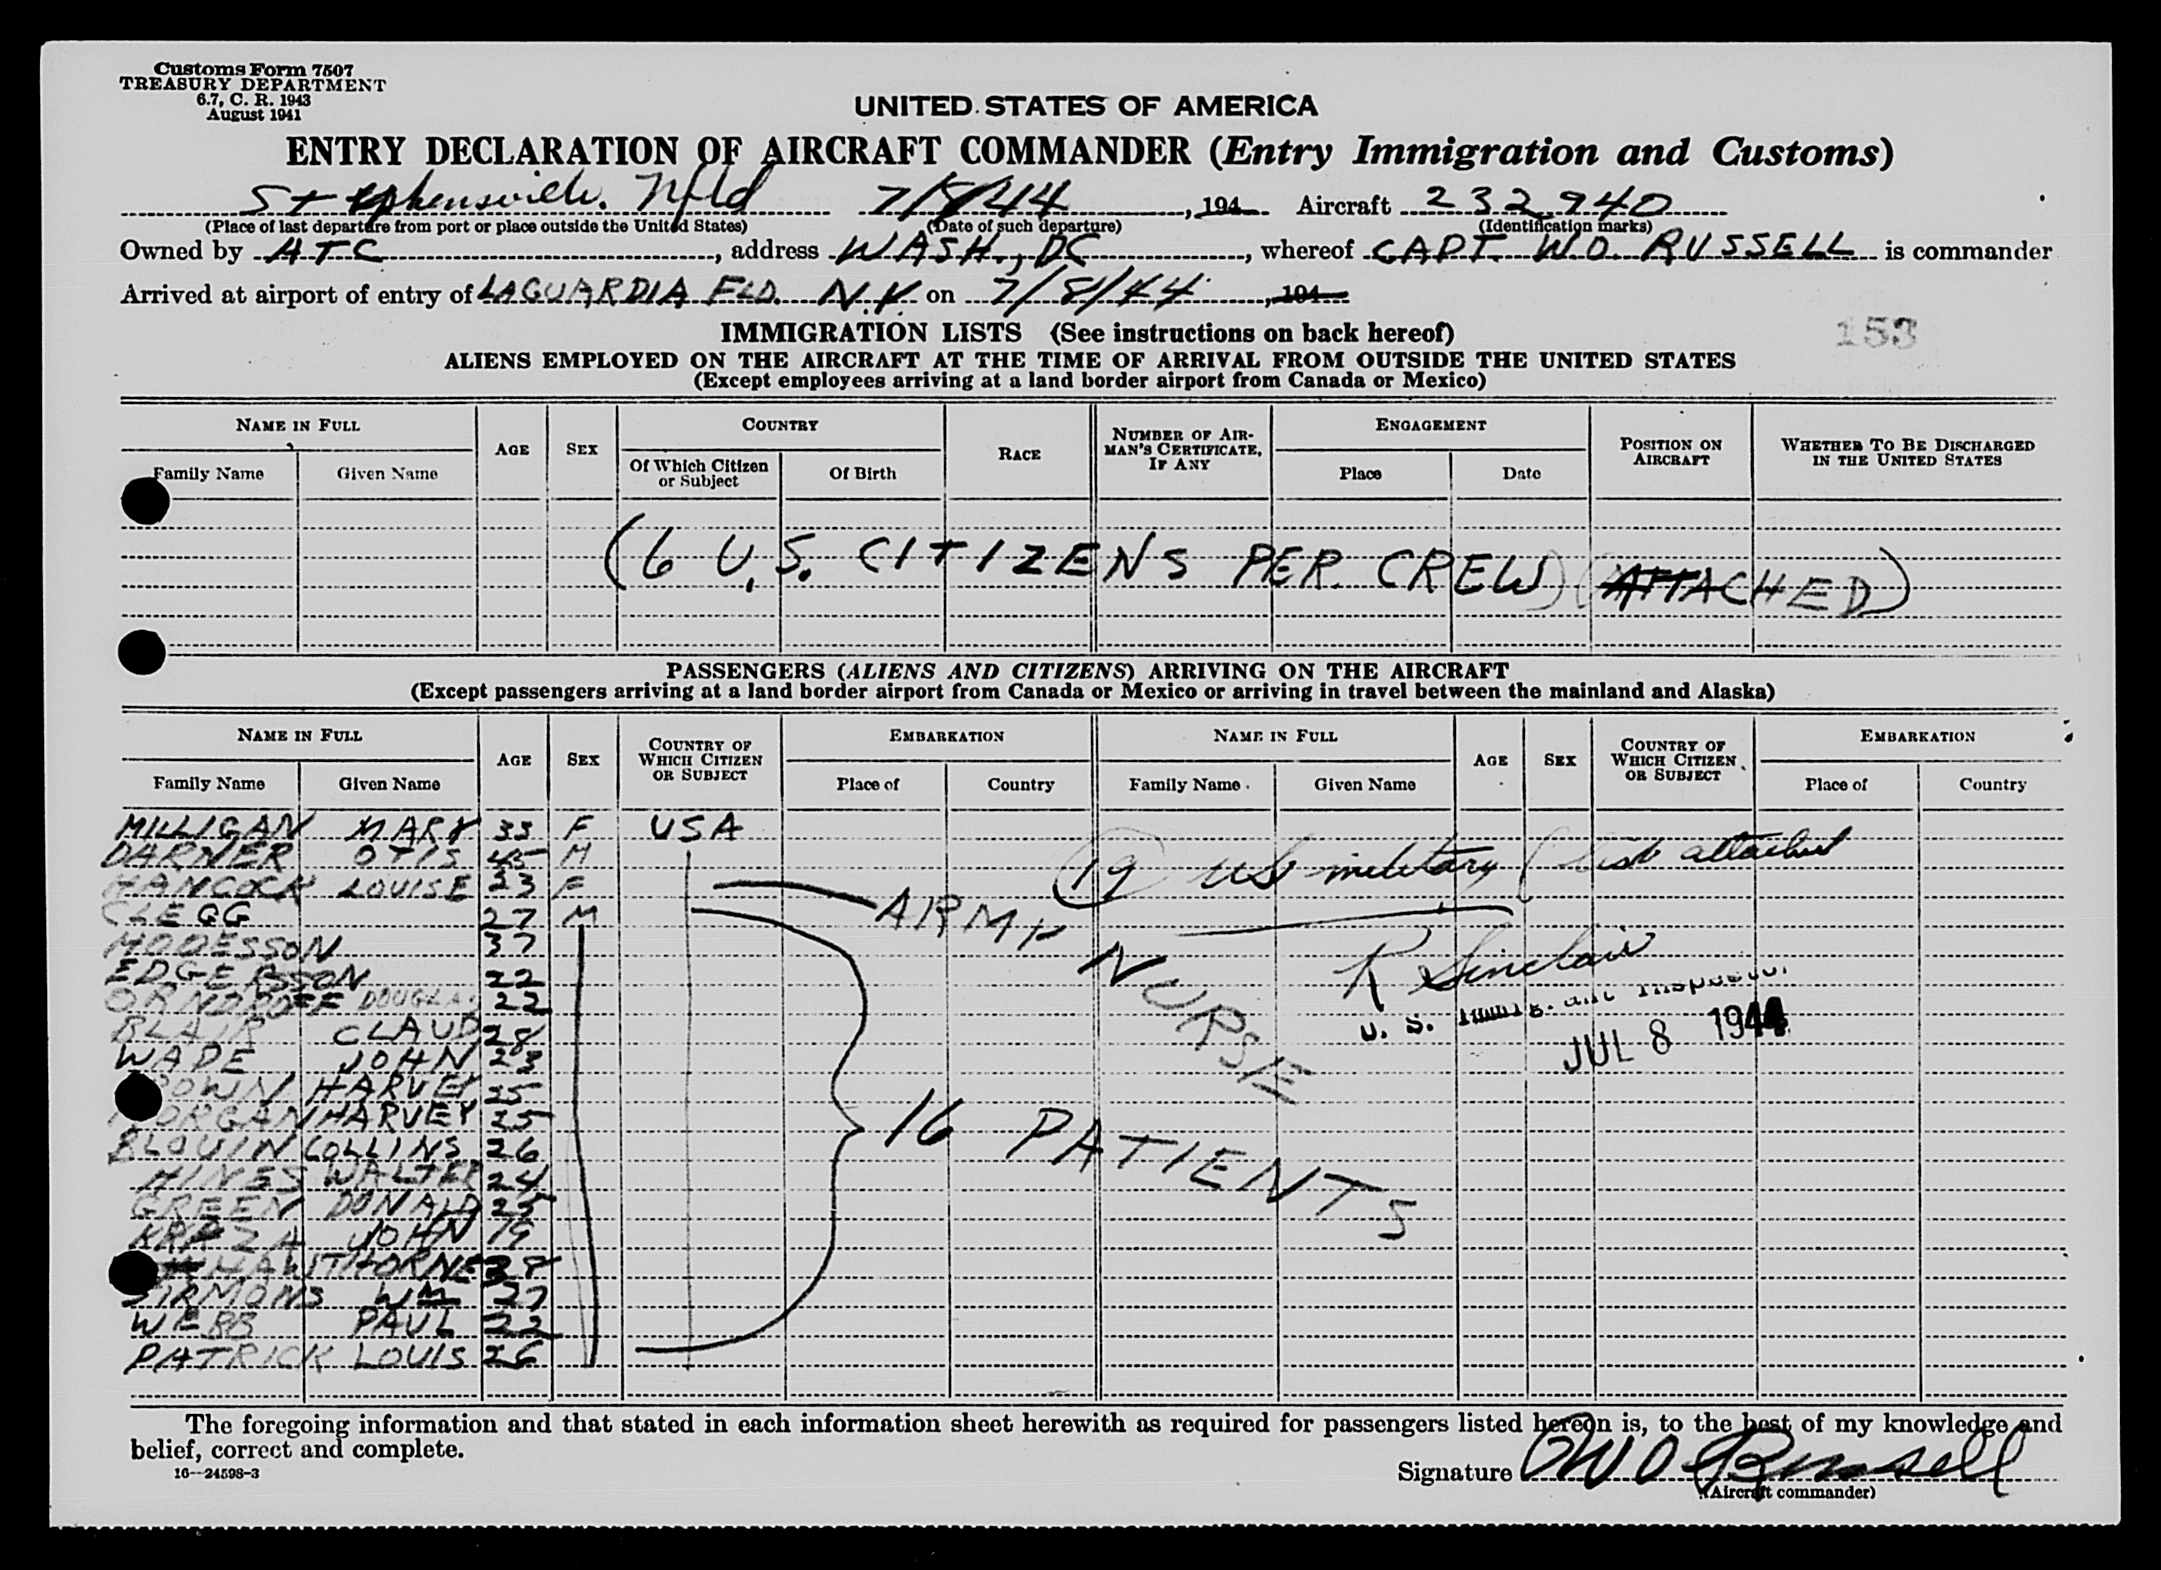 Customs Form 7507
TREASURY DEPARTMENT
6.7, C. R. 1943
August 1941
UNITED STATES OF AMERICA
ENTRY DECLARATION OF AIRCRAFT COMMANDER (Entry Immigration and Customs)
Stephensville. Nfld 7/8/44, 194 Aircraft 232940
(Place of last departure from port or place outside the United States) (Date of such departure) (Identification marks)
Owned by ATC, address WASH., DC, whereof CAPT. W.O. RUSSELL is commander
Arrived at airport of entry of LAGUARDIA FLD. N.Y. on 7/8/44, 194
153
IMMIGRATION LISTS (See instructions on back hereof)
ALIENS EMPLOYED ON THE AIRCRAFT AT THE TIME OF ARRIVAL FROM OUTSIDE THE UNITED STATES
(Except employees arriving at a land border airport from Canada or Mexico)
NAME IN FULL AGE SEX COUNTRY RACE NUMBER OF AIRMAN'S CERTIFICATE, IF ANY ENGAGEMENT POSITION ON AIRCRAFT WHETHER TO BE DISCHARGED IN THE UNITED STATES
Family Name Given Name Of Which Citizen or Subject Of Birth Place Date
(6 U.S. CITIZENS PER CREW) (ATTACHED)
PASSENGERS (ALIENS AND CITIZENS) ARRIVING ON THE AIRCRAFT
(Except passengers arriving at a land border airport from Canada or Mexico or arriving in travel between the mainland and Alaska)
NAME IN FULL AGE SEX COUNTRY OF WHICH CITIZEN OR SUBJECT EMBARKATION NAME IN FULL AGE SEX COUNTRY OF WHICH CITIZEN OR SUBJECT EMBARKATION
Family Name Given Name Place of Country Family Name Given Name Place of Country
MILLIGAN MARY 33 F USA
DARNER OTIS 45 M
HANCOCK LOUISE 23 F
CLEGG 27 M
37
22
ORNDROFF DOUGLAS 22
BLAIR CLAUD 28
WADE JOHN 23
BROWN HARVEY 25
MORGAN HARVEY 25
BLOUIN COLLINS 26
HINES WALTER 24
GREEN DONALD 25
JOHN 19
HAWTHORNE 28
SIRMONS WM 27
WEBB PAUL 22
PATRICK LOUIS 26
ARMY NURSE
16 PATIENTS
19 US military (list attached
R Sinclair
U. S. Immigrant Inspector
JUL 8 1944
The foregoing information and that stated in each information sheet herewith as required for passengers listed hereon is, to the best of my knowledge and
belief, correct and complete.
16—24598-3
Signature WO Russell
(Aircraft commander)